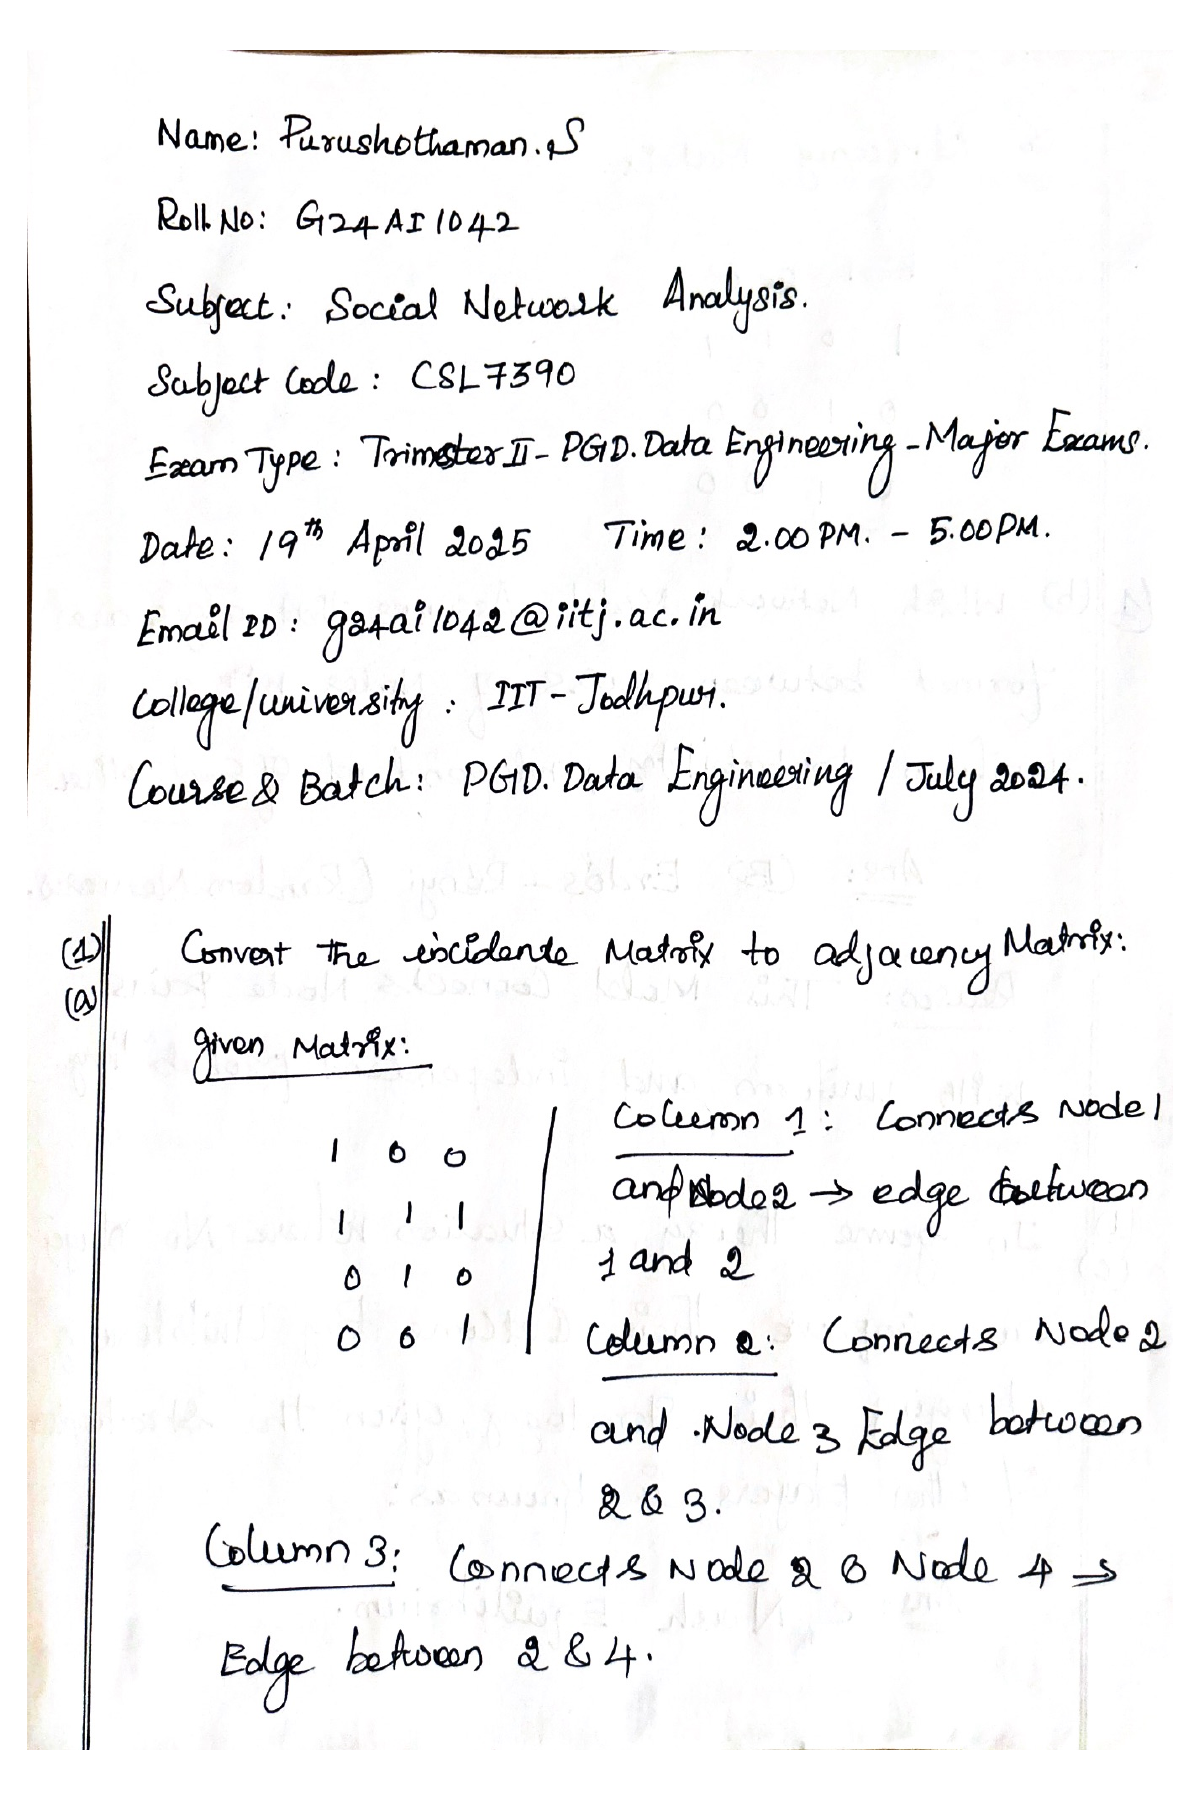 Name: Purushothaman.S
Roll No: G24AI1042
Subject: Social Network Analysis.
Subject Code: CSL7390
Exam Type: Trimester II - PGD. Data Engineering - Major Exams.
Date: 19th April 2025 Time: 2.00 PM. - 5.00 PM.
Email ID: g24ai1042@iitj.ac.in
College/university: IIT - Jodhpur.
Course & Batch: PGD. Data Engineering / July 2024.
(1) Convert the incidente Matrix to adjacency Matrix:
(a)
given Matrix:
1 0 0
1 1 1
0 1 0
0 0 1
Column 1: Connects Node 1
and Node 2 → edge between
1 and 2
Column 2: Connects Node 2
and Node 3 Edge between
2 & 3.
Column 3: Connects Node 2 & Node 4 →
Edge between 2 & 4.